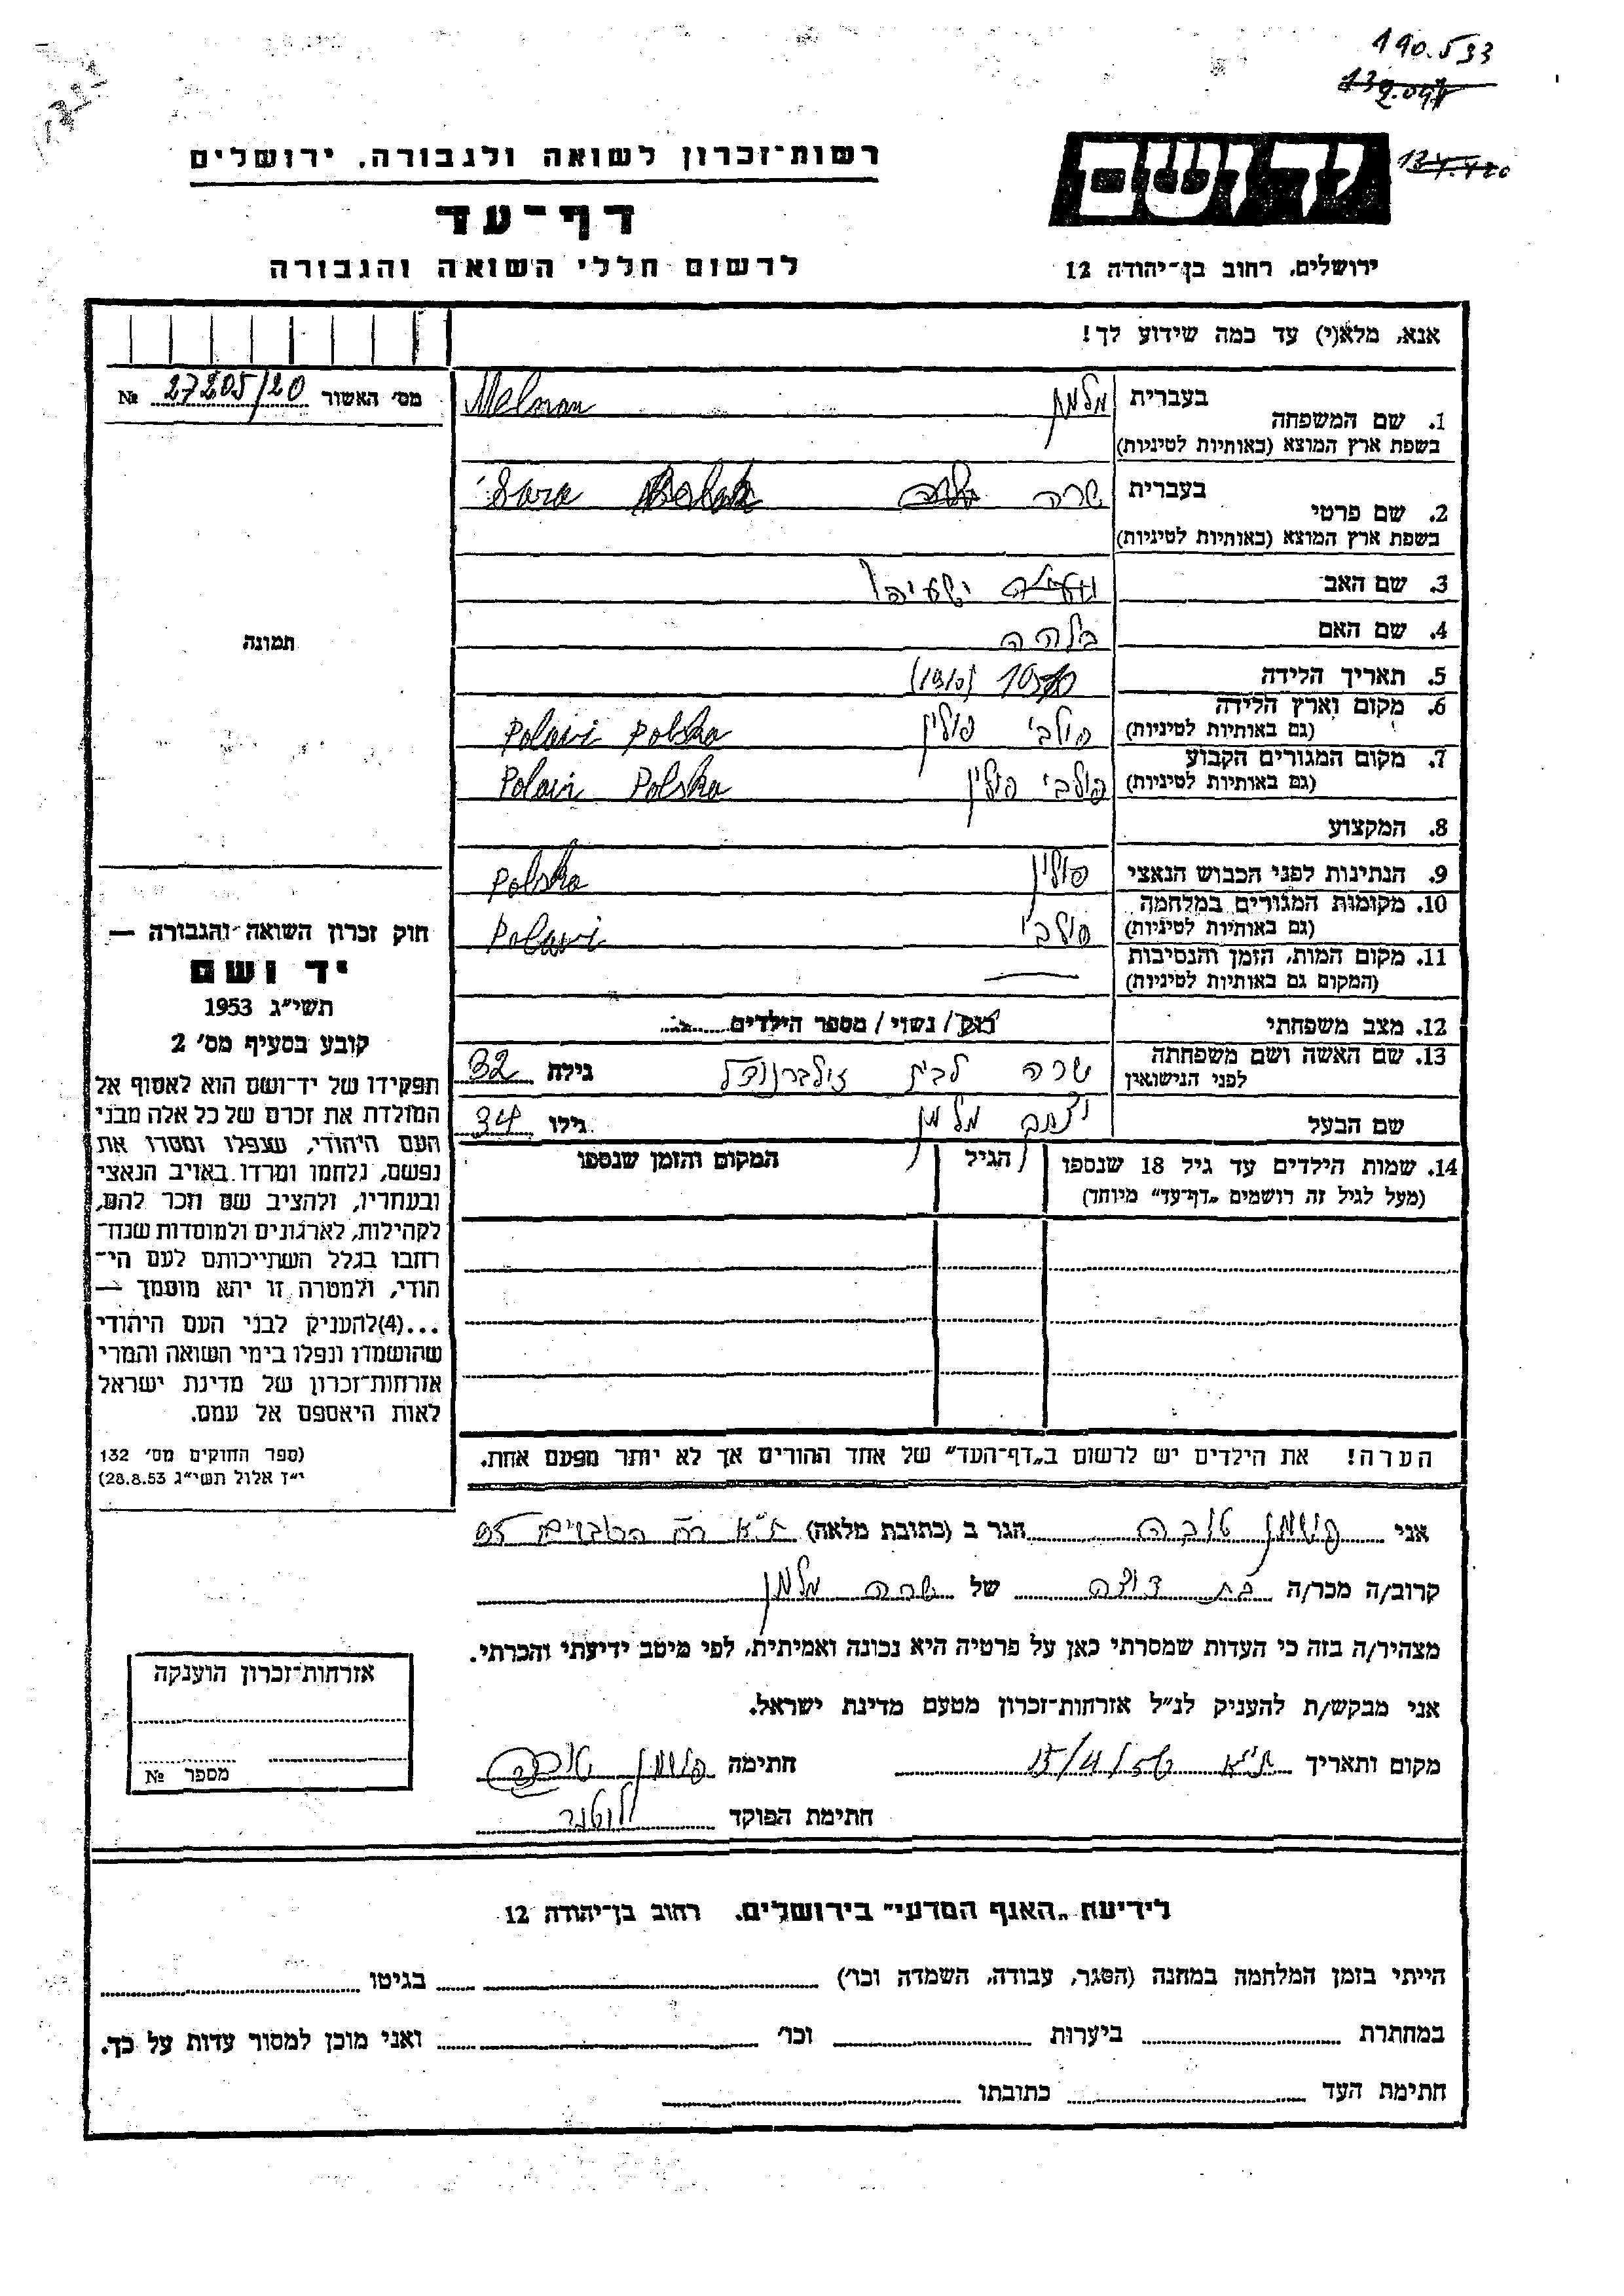 190.533
רשות־זכרון לשואה ולגבורה, ירושלים
יד ושם
דף־עד
לרשום חללי השואה והגבורה
ירושלים, רחוב בן־יהודה 12
אנא, מלא(י) עד כמה שידוע לך!
מס׳ האשור 27205/20 №
1. שם המשפחה בעברית מלמן Melman
בשפת ארץ המוצא (באותיות לטיניות)
2. שם פרטי בעברית שרה Sara
בשפת ארץ המוצא (באותיות לטיניות)
3. שם האב ישעיהו
4. שם האם בלהה
5. תאריך הלידה (1910)
6. מקום וארץ הלידה פולבי פולין Polavi Polska
(גם באותיות לטיניות)
7. מקום המגורים הקבוע פולבי פולין Polavi Polska
(גם באותיות לטיניות)
8. המקצוע
9. הנתינות לפני הכבוש הנאצי פולין Polska
10. מקומות המגורים במלחמה פולבי Polavi
(גם באותיות לטיניות)
11. מקום המות, הזמן והנסיבות —
(המקום גם באותיות לטיניות)
12. מצב משפחתי רוק / נשוי / מספר הילדים
13. שם האשה ושם משפחתה שרה לבית גילה 32
לפני הנישואין
שם הבעל יעקב מלמן גילו 34
14. שמות הילדים עד גיל 18 שנספו הגיל המקום והזמן שנספו
(מעל לגיל זה רושמים „דף־עד״ מיוחד)
תמונה
חוק זכרון השואה והגבורה —
יד ושם
תשי״ג 1953
קובע בסעיף מס׳ 2
תפקידו של יד־ושם הוא לאסוף אל
המולדת את זכרם של כל אלה מבני
העם היהודי, שנפלו ומסרו את
נפשם, נלחמו ומרדו באויב הנאצי
ובעוזריו, ולהציב שם וזכר להם,
לקהילות, לארגונים ולמוסדות שנח־
רחבו בגלל השתייכותם לעם הי־
הודי, ולמטרה זו יהא מוסמך —
...(4)להעניק לבני העם היהודי
שהושמדו ונפלו בימי השואה והמרי
אזרחות־זכרון של מדינת ישראל
לאות היאספם אל עמם.
(ספר החוקים מס׳ 132
י״ז אלול תשי״ג 28.8.53)
הערה! את הילדים יש לרשום ב„דף־העד״ של אחד ההורים אך לא יותר מפעם אחת.
אני טובה הגר ב (כתובת מלאה) ת״א רח
קרוב/ה מכר/ה בת דודה של שרה מלמן
מצהיר/ה בזה כי העדות שמסרתי כאן על פרטיה היא נכונה ואמיתית, לפי מיטב ידיעתי והכרתי.
אני מבקש/ת להעניק לנ״ל אזרחות־זכרון מטעם מדינת ישראל.
מקום ותאריך ת״א חתימה טובה
חתימת הפוקד
אזרחות־זכרון הוענקה
מספר №
לידיעת „האגף המדעי״ בירושלים, רחוב בן־יהודה 12
הייתי בזמן המלחמה במחנה (הסגר, עבודה, השמדה וכו׳) בגיטו
במחתרת ביערות וכו׳ ואני מוכן למסור עדות על כך.
חתימת העד כתובתו